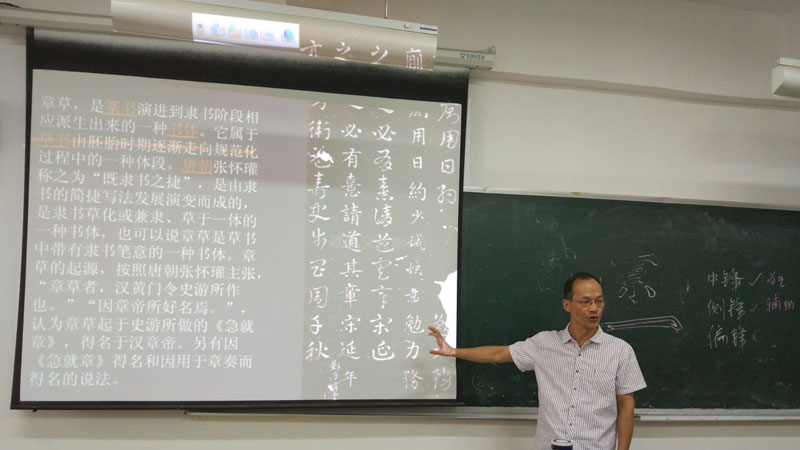 章草，是篆书演进到隶书阶段相
应派生出来的一种书体。它属于
草书由胚胎时期逐渐走向规范化
过程中的一种体段。唐朝张怀瓘
称之为“既隶书之捷”，是由隶
书的简捷写法发展演变而成的，
是隶书草化或兼隶、草于一体的
一种书体，也可以说章草是草书
中带有隶书笔意的一种书体。章
草的起源，按照唐朝张怀瓘主张，
“章草者，汉黄门令史游所作
也。”“因章帝所好名焉。”，
认为章草起于史游所做的《急就
章》，得名于汉章帝。另有因
《急就章》得名和因用于章奏而
得名的说法。
廁用日約少誠快意勉力務
之必有憙請道其章宋延年
方衛益壽史步昌周千秋
中锋 ✓ 主
侧锋 ✓ 辅助
偏锋 ×